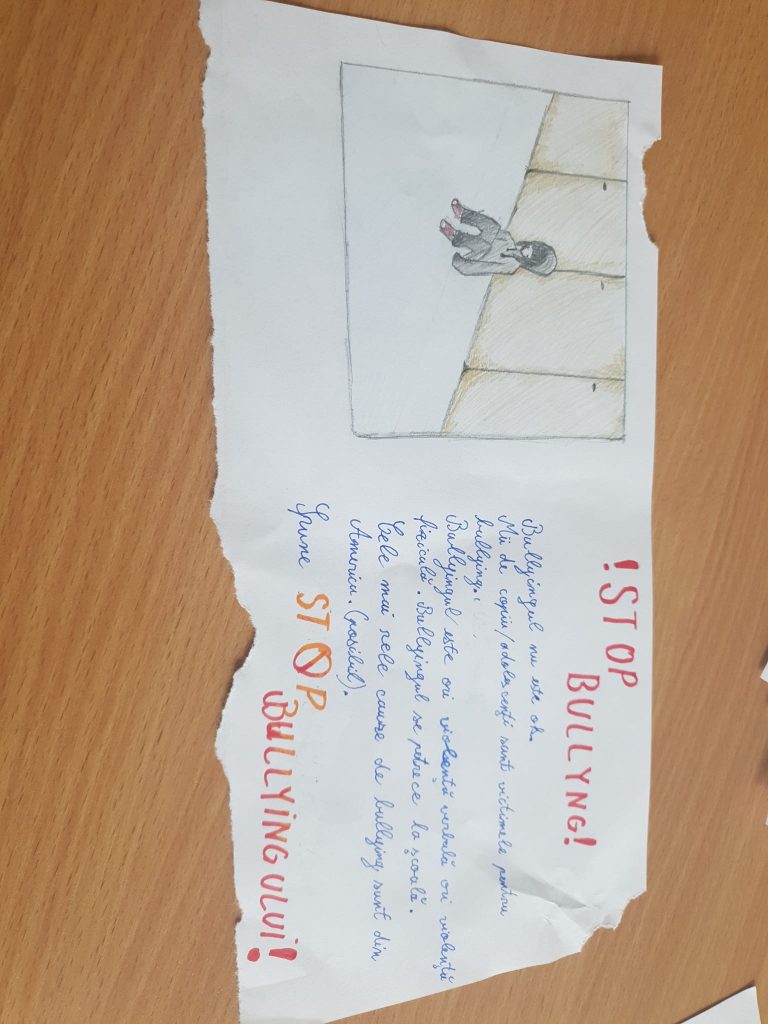 !STOP
BULLYNG!
Bullyingul nu este ok.
Mii de copiu/adolescenți sunt victimele pentru
bullying.
Bullyingul este ori violență verbală ori violență
fizicală. Bullyingul se petrece la școală.
Cele mai rele cauze de bullying sunt din
America. (posibil).
Spune STOP
BULLYINGULUI!